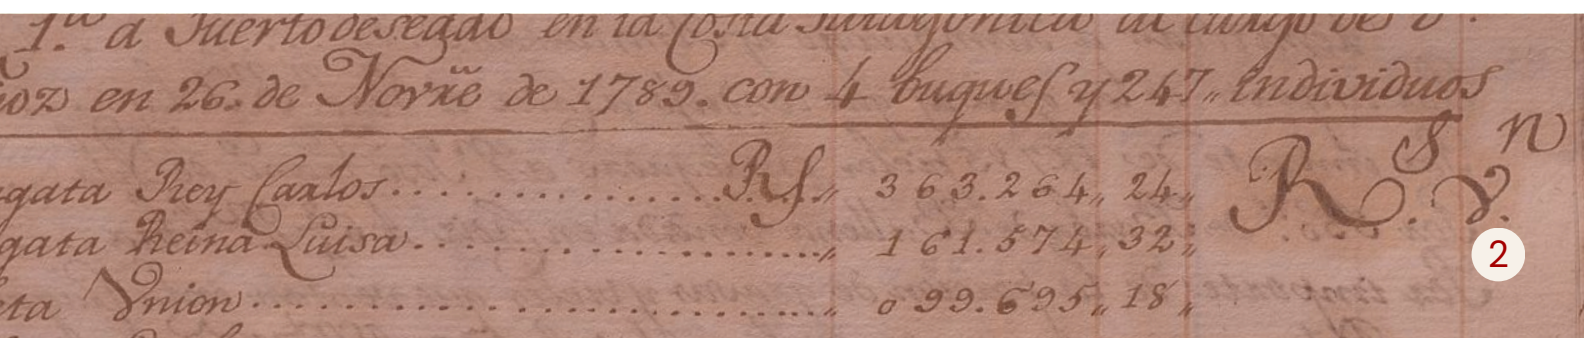 1.ª a Puerto deseado en la Costa Patagonica al cargo de
en 26. de Novre de 1789. con 4 buques y 247,, individuos
Rey Carlos.................Rs,, 363.264,, 24,, Rs. Vn.
gata Reina Luisa.................,, 161.574,, 32,,
Vnion.................,, 099.695,, 18,,
2